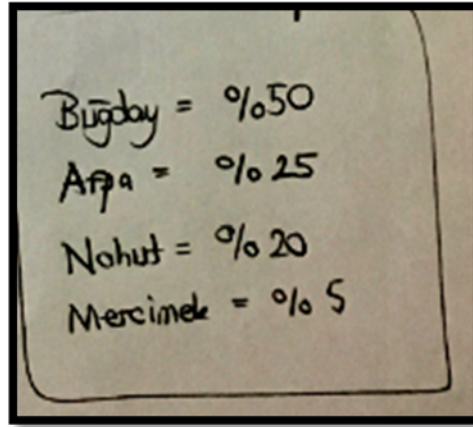 Buğday = %50
Arpa = %25
Nohut = %20
Mercimek = %5